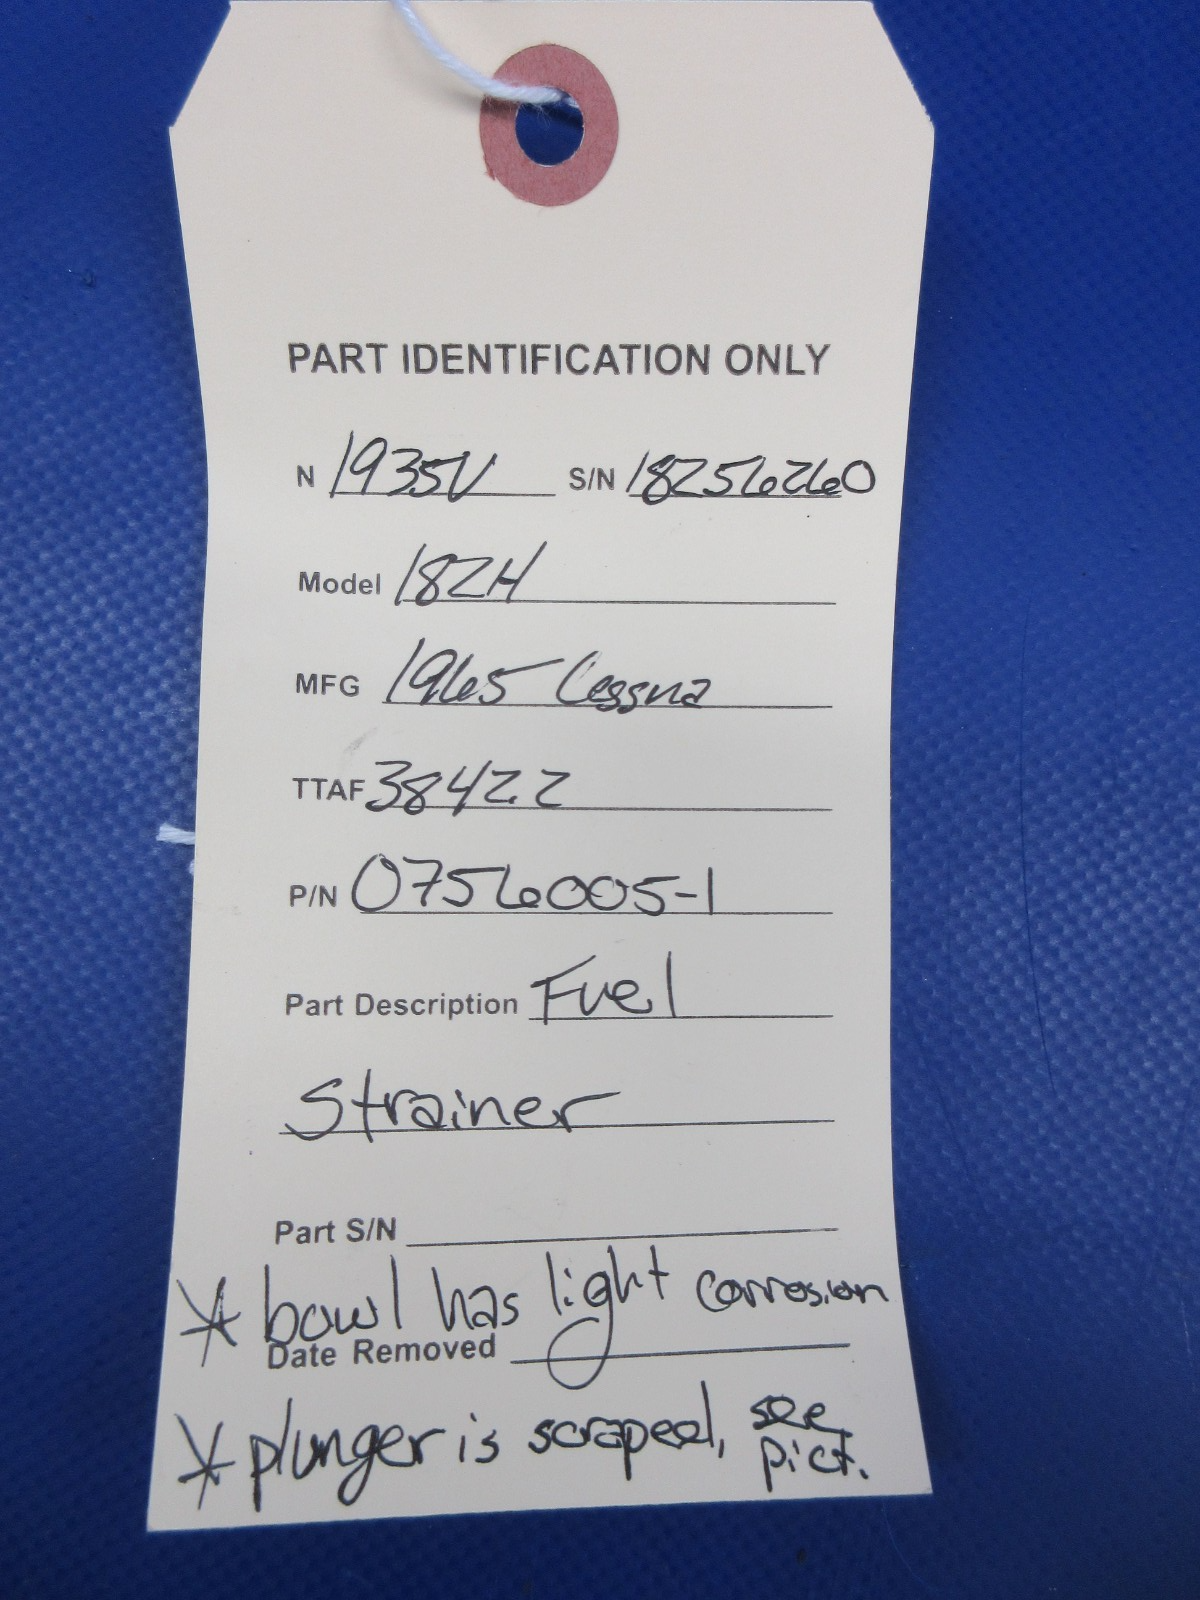 PART IDENTIFICATION ONLY
N 1935V S/N 18256260
Model 182H
MFG 1965 Cessna
TTAF 3842.2
P/N 0756005-1
Part Description Fuel
Strainer
Part S/N
* bowl has light corrosion
Date Removed
* plunger is scraped, see
pict.